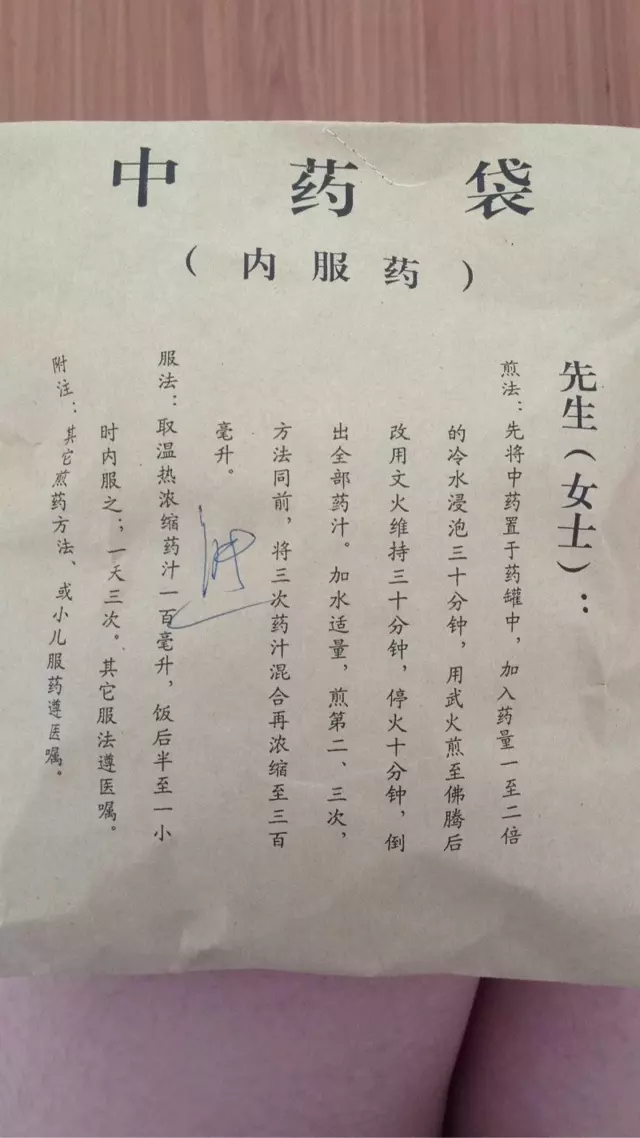 中药袋
（内服药）
先生（女士）：
煎法：先将中药置于药罐中，加入药量一至二倍
的冷水浸泡三十分钟，用武火煎至佛腾后
改用文火维持三十分钟，停火十分钟，倒
出全部药汁。加水适量，煎第二、三次，
方法同前，将三次药汁混合再浓缩至三百
毫升。
服法：取温热浓缩药汁一百毫升，饭后半至一小
时内服之；一天三次。其它服法遵医嘱。
附注：其它煎药方法、或小儿服药遵医嘱。